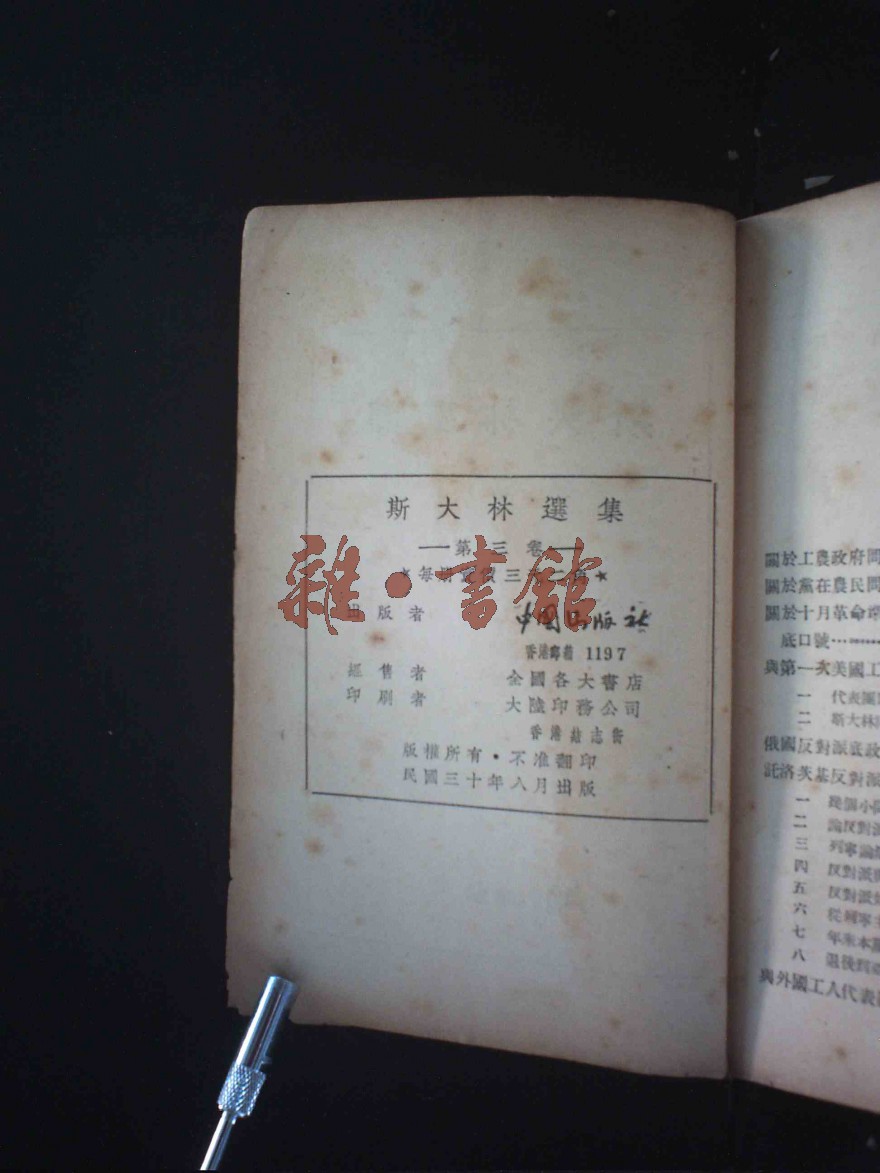 斯大林選集
第三卷
雜·書館
出版者 中國出版社
香港郵箱 1197
經售者 全國各大書店
印刷者 大陸印務公司
版權所有·不准翻印
民國三十年八月出版
關於工農政府問
關於黨在農民問
關於十月革命準
底口號……
與第一次美國工
一 代表團
二 斯大林
俄國反對派底政
託洛茨基反對派
一 幾個小
二 論反對派
三 列寧論
四 反對派
五 反對派
六 從列寧
七 年來本黨
八 退後到
與外國工人代表